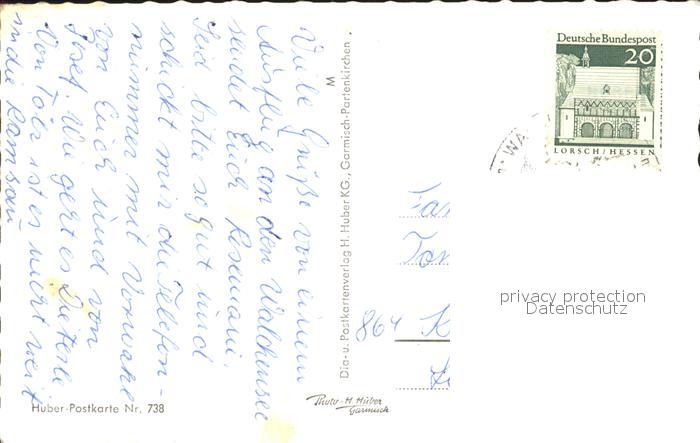 Viele Grüße von einem
Ausflug an den Walchensee
sendet Euch Rosmarie.
Seid bitte so gut und
schickt mir die Telefon-
nummer mit Vorwahl
von Euch und von
Josef. Wie geht es Dieterle
Von Tölz ist es nicht weit
in die Ramsau
Huber-Postkarte Nr. 738
Dia- u. Postkartenverlag H. Huber KG., Garmisch-Partenkirchen
M
Photo - H. Huber
Garmisch
Deutsche Bundespost
20
LORSCH / HESSEN
WA
Fa
864 K
privacy protection
Datenschutz